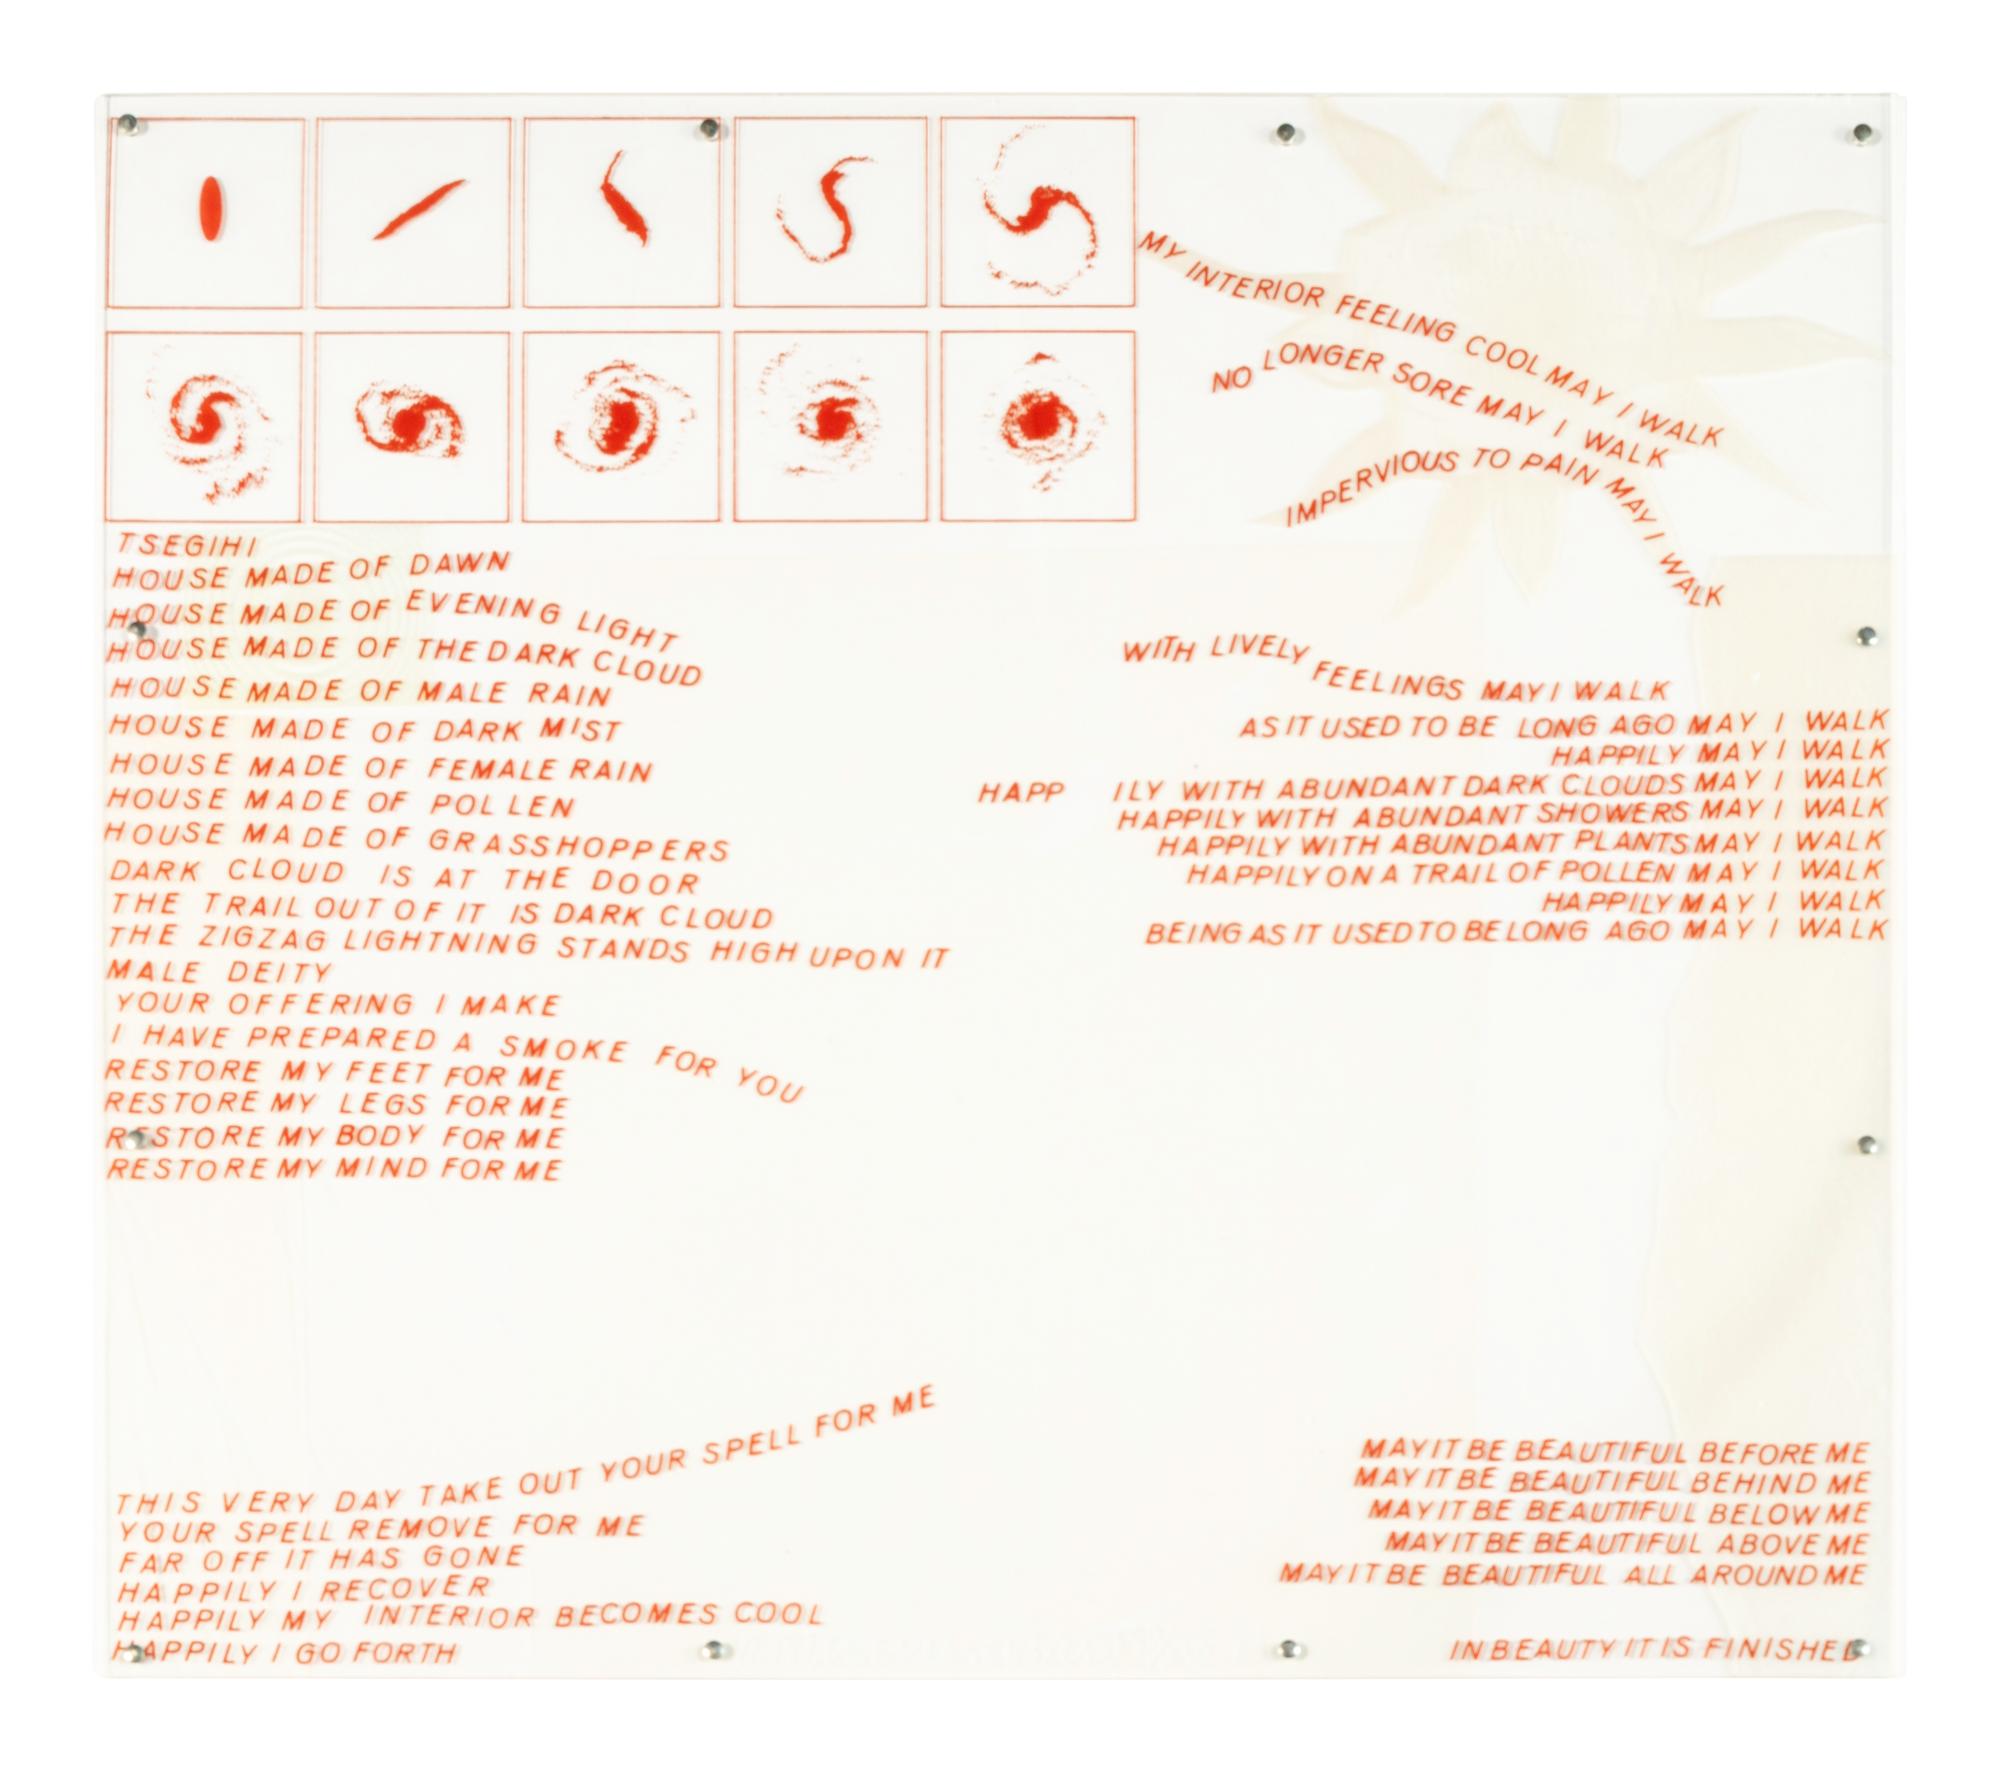 TSEGIHI
HOUSE MADE OF DAWN
HOUSE MADE OF EVENING LIGHT
HOUSE MADE OF THE DARK CLOUD
HOUSE MADE OF MALE RAIN
HOUSE MADE OF DARK MIST
HOUSE MADE OF FEMALE RAIN
HOUSE MADE OF POLLEN
HOUSE MADE OF GRASSHOPPERS
DARK CLOUD IS AT THE DOOR
THE TRAIL OUT OF IT IS DARK CLOUD
THE ZIGZAG LIGHTNING STANDS HIGH UPON IT
MALE DEITY
YOUR OFFERING I MAKE
I HAVE PREPARED A SMOKE FOR YOU
RESTORE MY FEET FOR ME
RESTORE MY LEGS FOR ME
RESTORE MY BODY FOR ME
RESTORE MY MIND FOR ME
THIS VERY DAY TAKE OUT YOUR SPELL FOR ME
YOUR SPELL REMOVE FOR ME
FAR OFF IT HAS GONE
HAPPILY I RECOVER
HAPPILY MY INTERIOR BECOMES COOL
HAPPILY I GO FORTH
MY INTERIOR FEELING COOL MAY I WALK
NO LONGER SORE MAY I WALK
IMPERVIOUS TO PAIN MAY I WALK
WITH LIVELY FEELINGS MAY I WALK
AS IT USED TO BE LONG AGO MAY I WALK
HAPPILY MAY I WALK
HAPP ILY WITH ABUNDANT DARK CLOUDS MAY I WALK
HAPPILY WITH ABUNDANT SHOWERS MAY I WALK
HAPPILY WITH ABUNDANT PLANTS MAY I WALK
HAPPILY ON A TRAIL OF POLLEN MAY I WALK
HAPPILY MAY I WALK
BEING AS IT USED TO BE LONG AGO MAY I WALK
MAY IT BE BEAUTIFUL BEFORE ME
MAY IT BE BEAUTIFUL BEHIND ME
MAY IT BE BEAUTIFUL BELOW ME
MAY IT BE BEAUTIFUL ABOVE ME
MAY IT BE BEAUTIFUL ALL AROUND ME
IN BEAUTY IT IS FINISHED